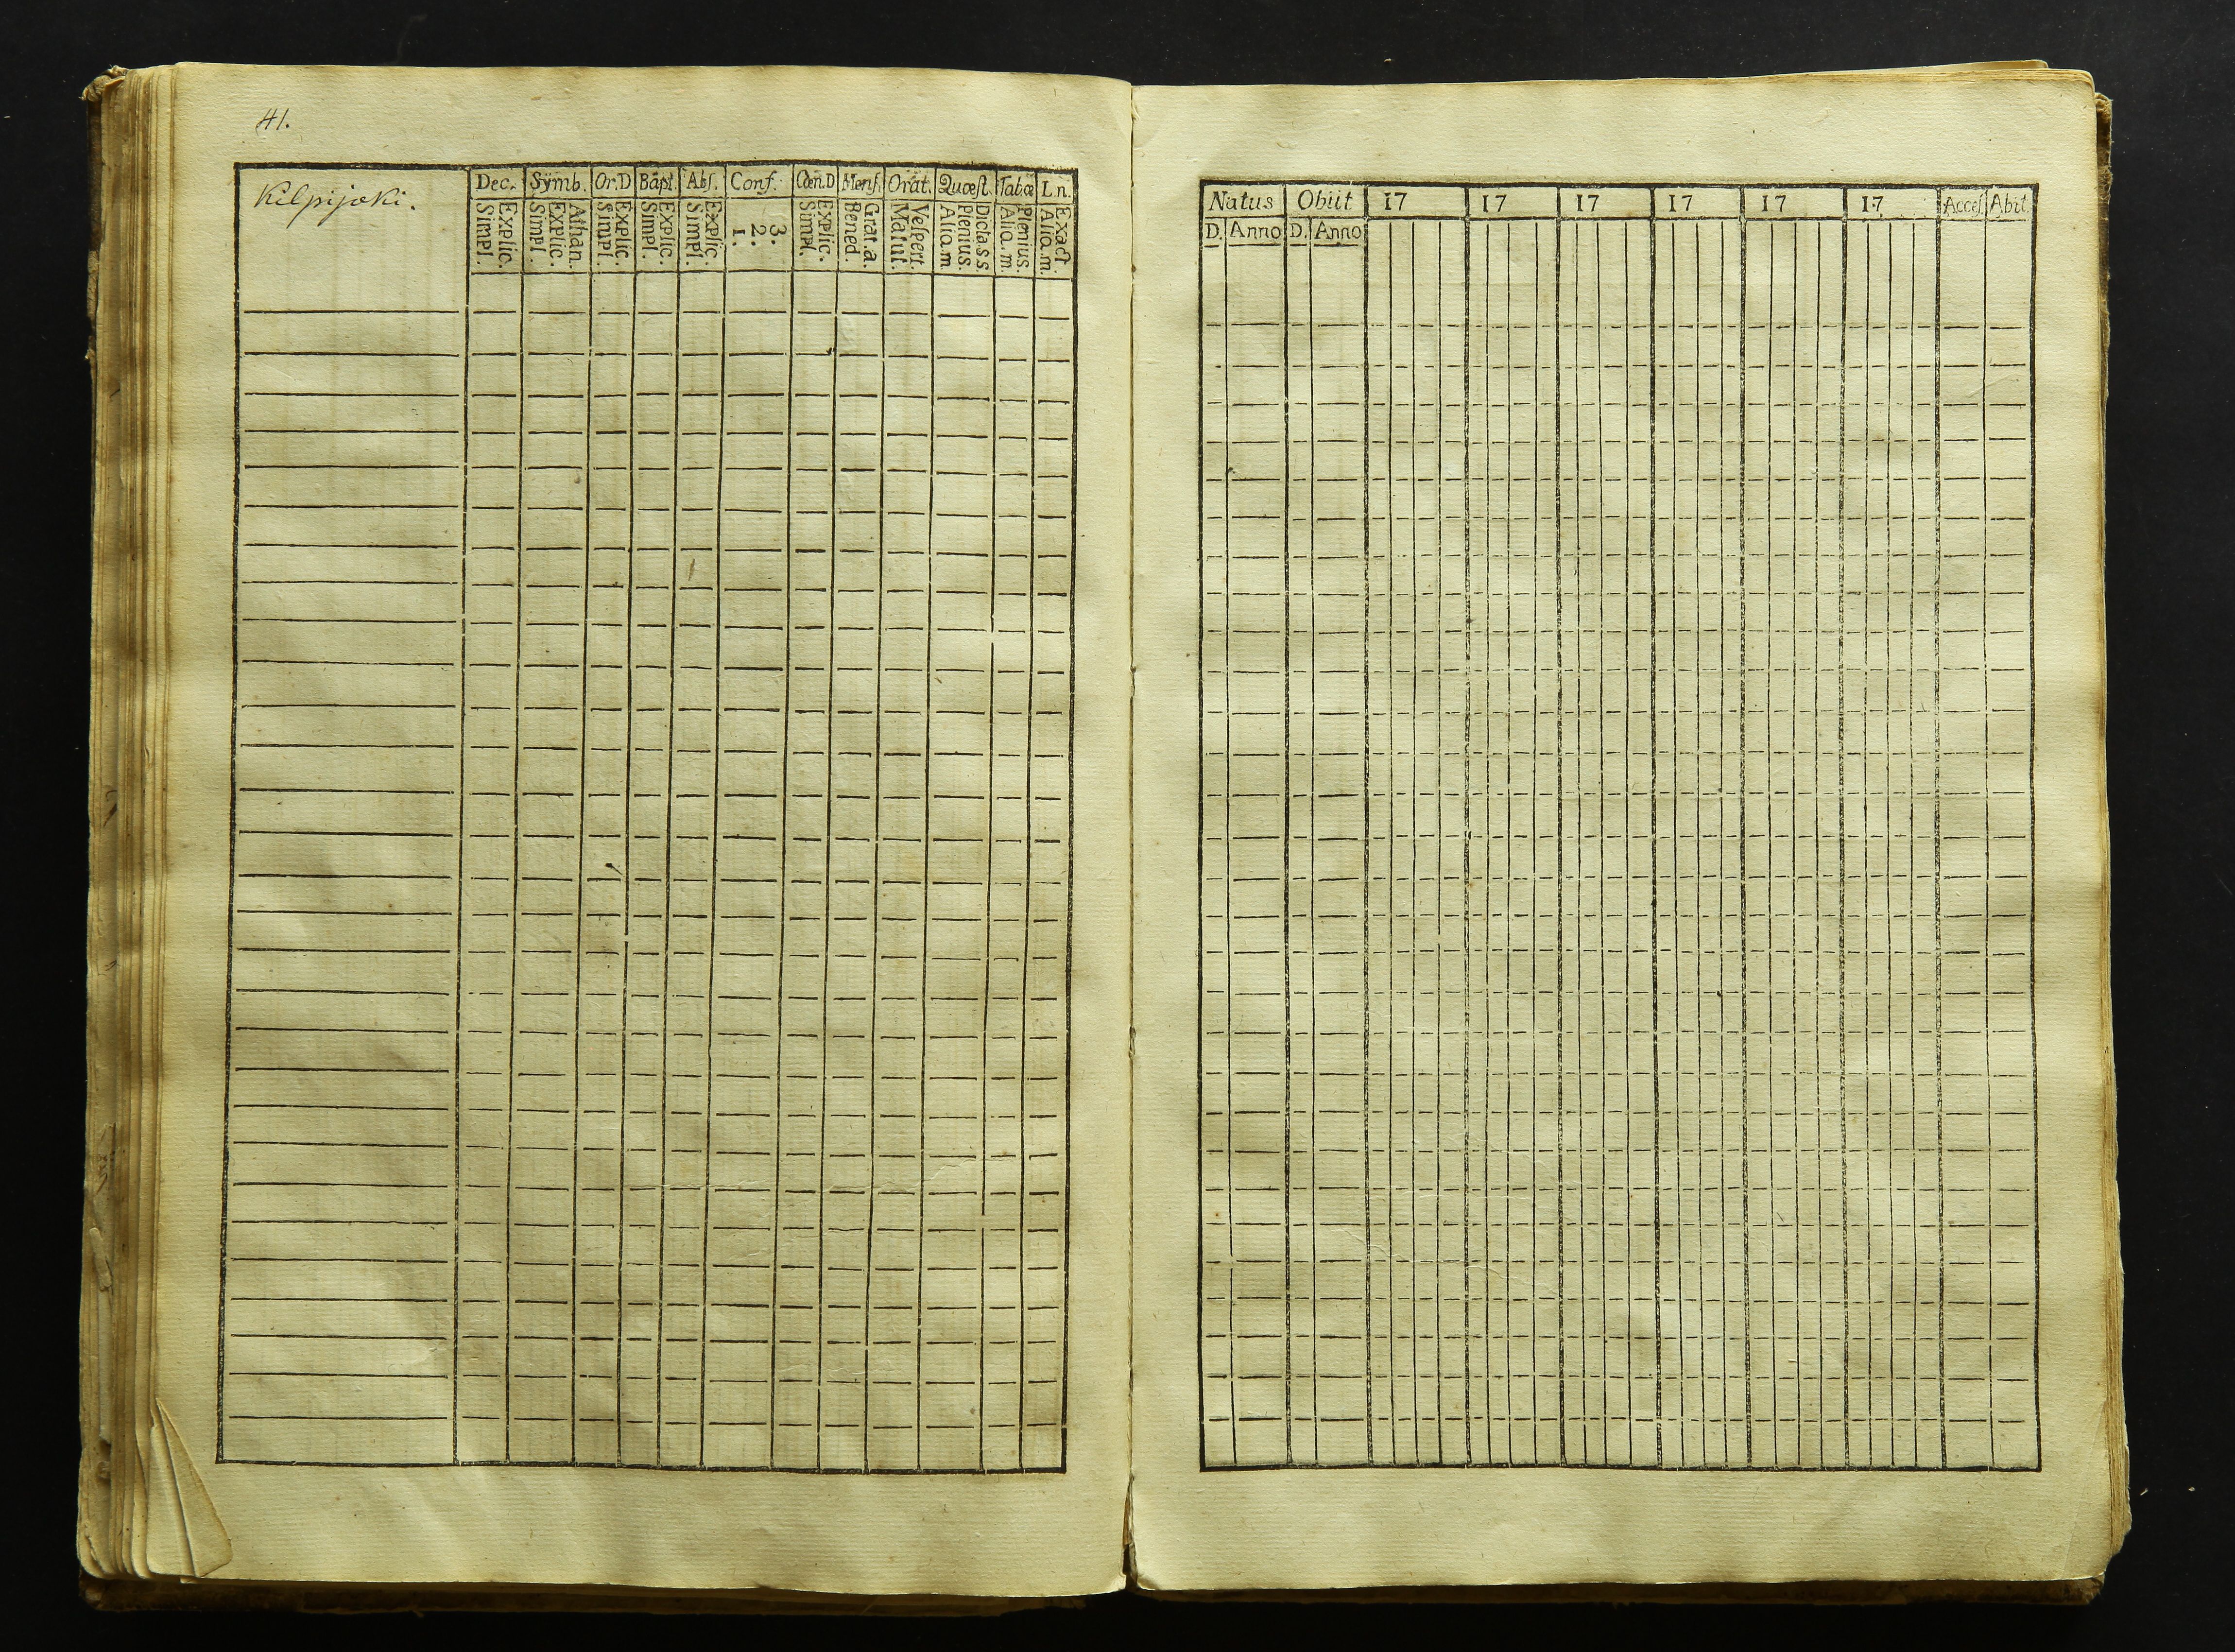 41.
Kilpijoki.
Dec. Symb. Or.D Bapt. Abs. Conf. Cœn.D Mens. Orat. Quæst. Tabœ L n.
Simpl. Explic. Simpl. Explic. Athan. Simpl. Explic. Simpl. Explic. Simpl. Explic. 1. 2. 3. Simpl. Explic. Bened. Grat.a. Matut. Vespert. Alio.m Plenius. Dicta.s s. Alio.m. Plenius. Alio.m. Exact.
Natus Obiit 17 17 17 17 17 17 Acces Abit
D. Anno D. Anno